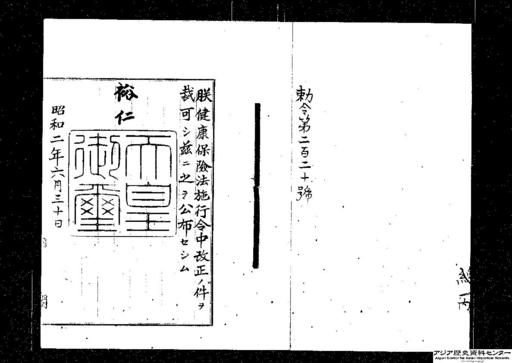 勅令第二百二十號
朕健康保險法施行令中改正ノ件ヲ
裁可シ茲ニ之ヲ公布セシム
裕仁
天皇
御璽
昭和二年六月三十日
アジア歴史資料センター
Japan Center for Asian Historical Records